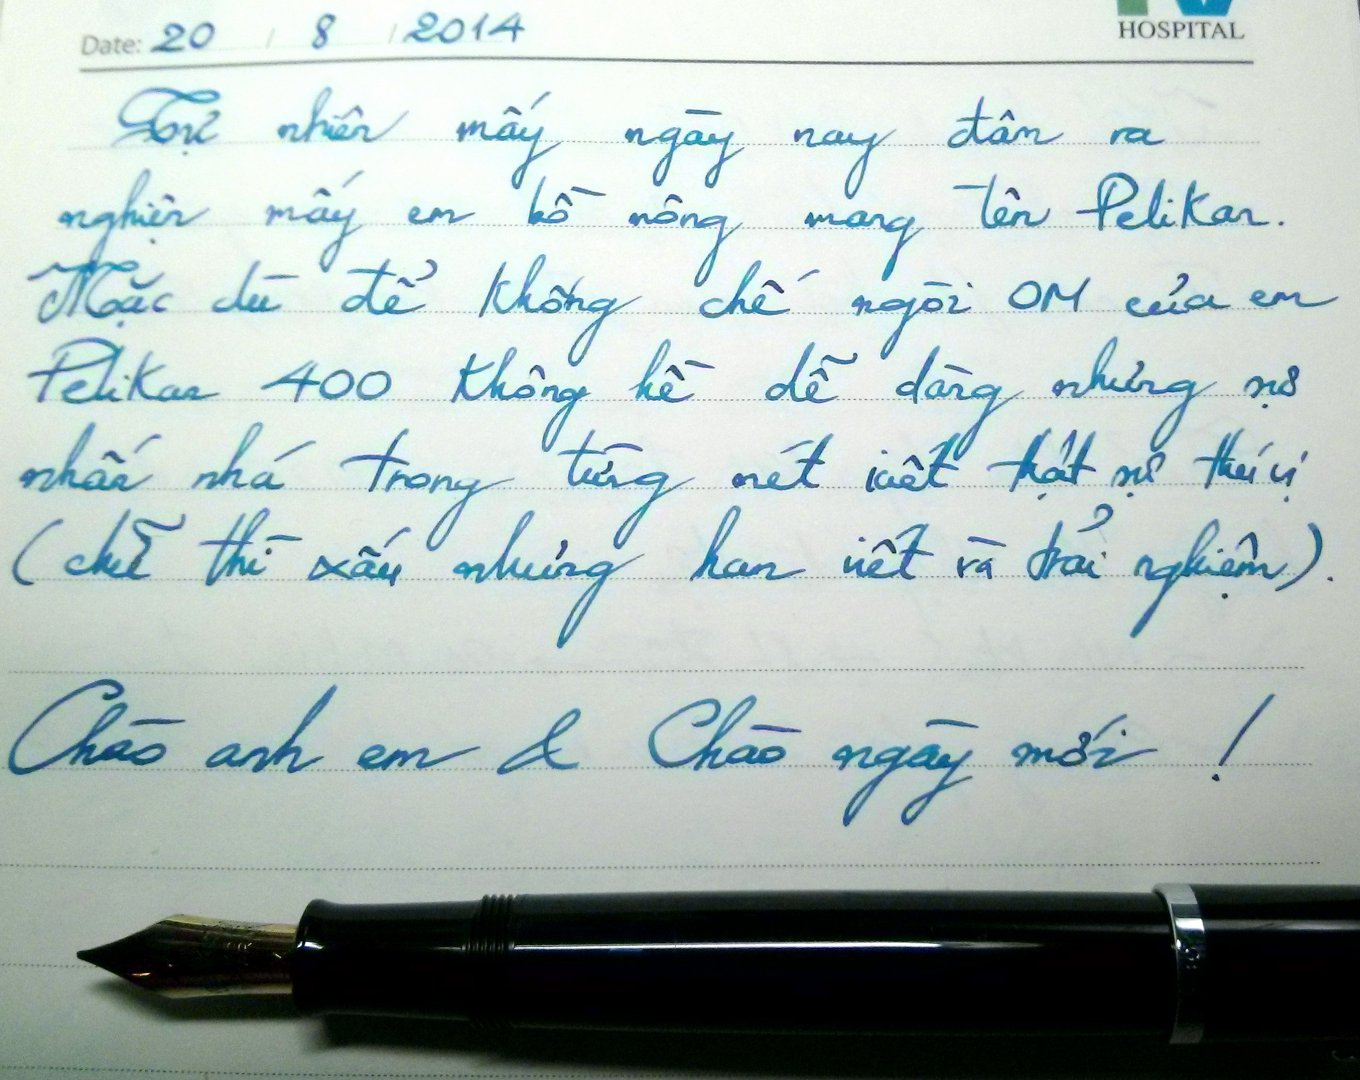 HOSPITAL
Date: 20 / 8 / 2014
Tự nhiên mấy ngày nay đâm ra
nghiện mấy em bồ nông mang tên Pelikan.
Mặc dù để khống chế ngòi OM của em
Pelikan 400 không hề dễ dàng nhưng sự
nhấn nhá trong từng nét viết thật sự thú vị
(chữ thì xấu nhưng ham viết và trải nghiệm).
Chào anh em & Chào ngày mới !